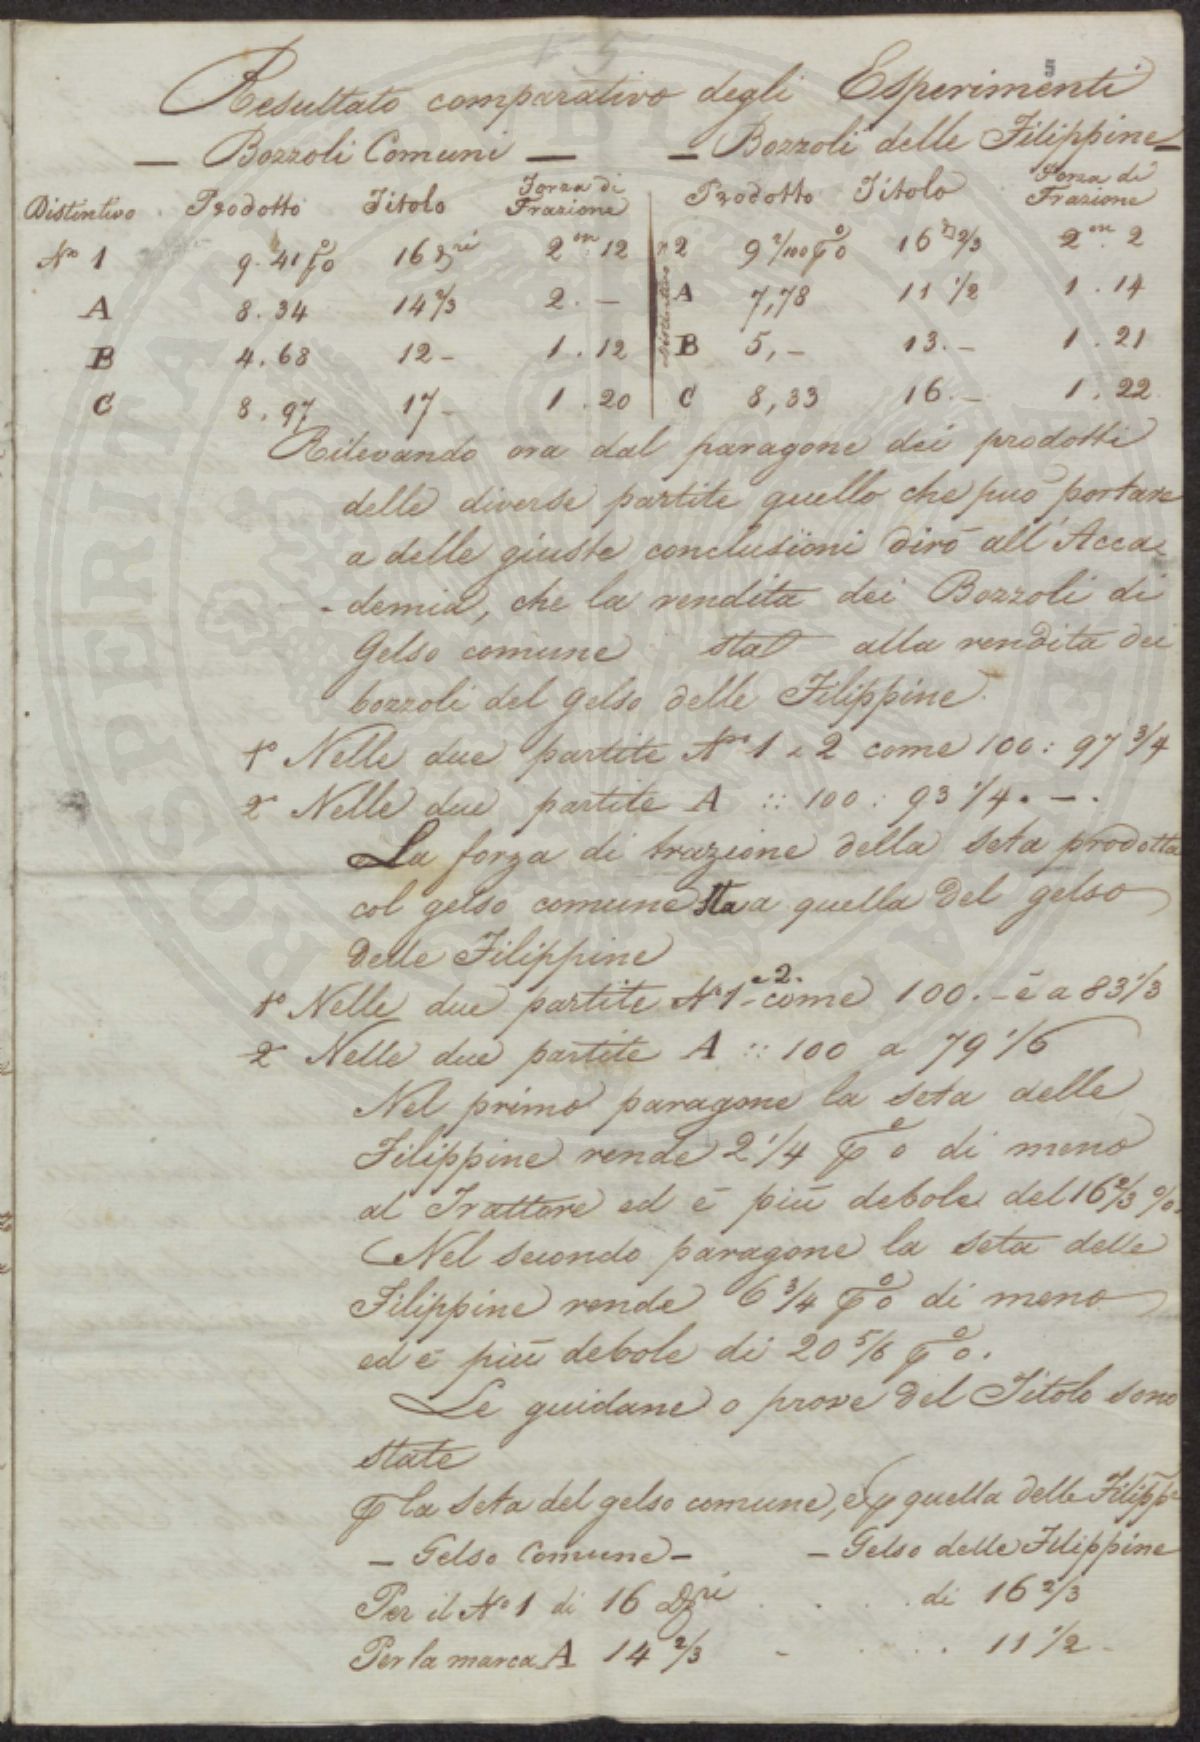 5
Resultato comparativo degli Esperimenti
— Bozzoli Comuni — — Bozzoli delle Filippine —
Distintivo Prodotto Titolo Forza di Trazione Prodotto Titolo Forza di Trazione
No 1 9.41 p% 16 ri 2 on. 12 No 2 9 2/100 p% 16 2/3 2 on. 2
A 8.34 14 2/3 2. — A 7,78 11 1/2 1.14
B 4.68 12 - 1.12 B 5,- 13.- 1.21
C 8.97 17 - 1.20 C 8,33 16.- 1.22
Distintivo
Rilevando ora dal paragone dei prodotti
delle diverse partite quello che può portare
a delle giuste conclusioni dirò all'Acca-
-demia, che la rendita dei Bozzoli di
Gelso comune sta alla rendita dei
bozzoli del gelso delle Filippine
1o Nelle due partite No 1 e 2 come 100: 97 3/4
2o Nelle due partite A :: 100: 93 1/4. - .
La forza di trazione della seta prodotta
col gelso comune sta a quella del gelso
delle Filippine
1o Nelle due partite No 1 e 2. come 100.- è a 83 1/3
2o Nelle due partite A :: 100 a 79 1/6
Nel primo paragone la seta delle
Filippine rende 2 1/4 p% di meno
al Trattore ed è più debole del 16 2/3 %.
Nel secondo paragone la seta delle
Filippine rende 6 3/4 p% di meno
ed è più debole di 20 5/6 p%.
Le guidane o prove del Titolo sono
state
p la seta del gelso comune, e p quella delle Filipp.e
— Gelso Comune — — Gelso delle Filippine
Per il No 1 di 16 Dri . . . . di 16 2/3
Per la marca A 14 2/3 - . . . 11 1/2 -